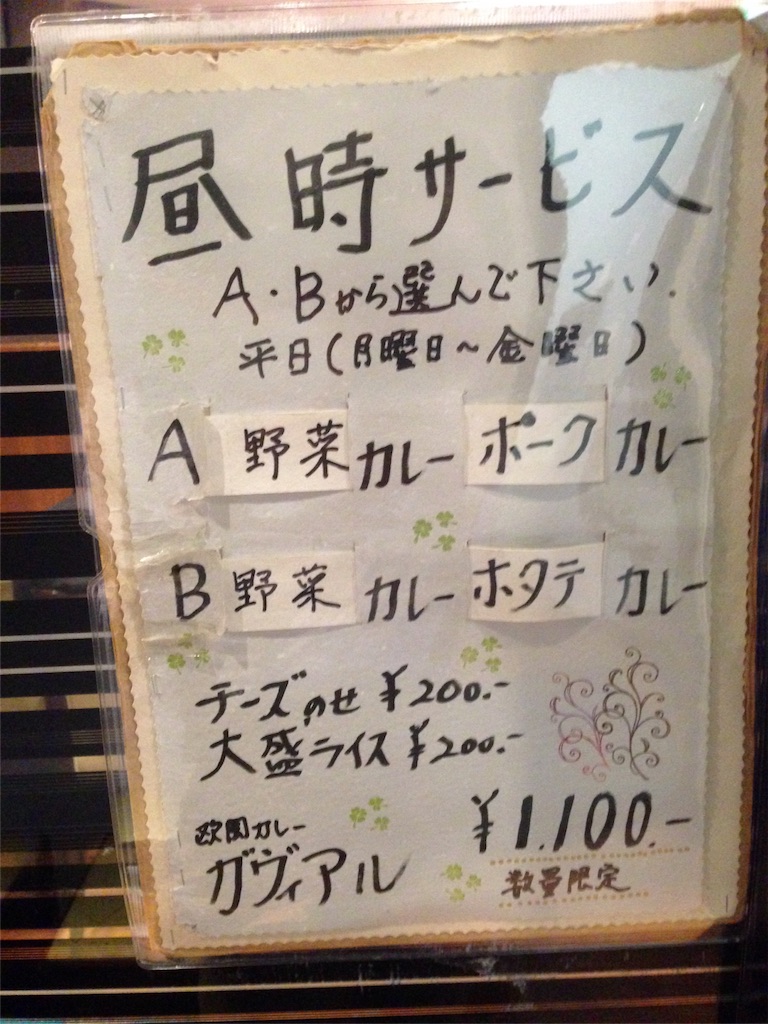 昼時サービス
A・Bから選んで下さい.
平日(月曜日~金曜日)
A 野菜カレー ポークカレー
B 野菜カレー ホタテカレー
チーズのせ ¥200.-
大盛ライス ¥200.-
欧風カレー
ガヴィアル
¥1,100.-
数量限定